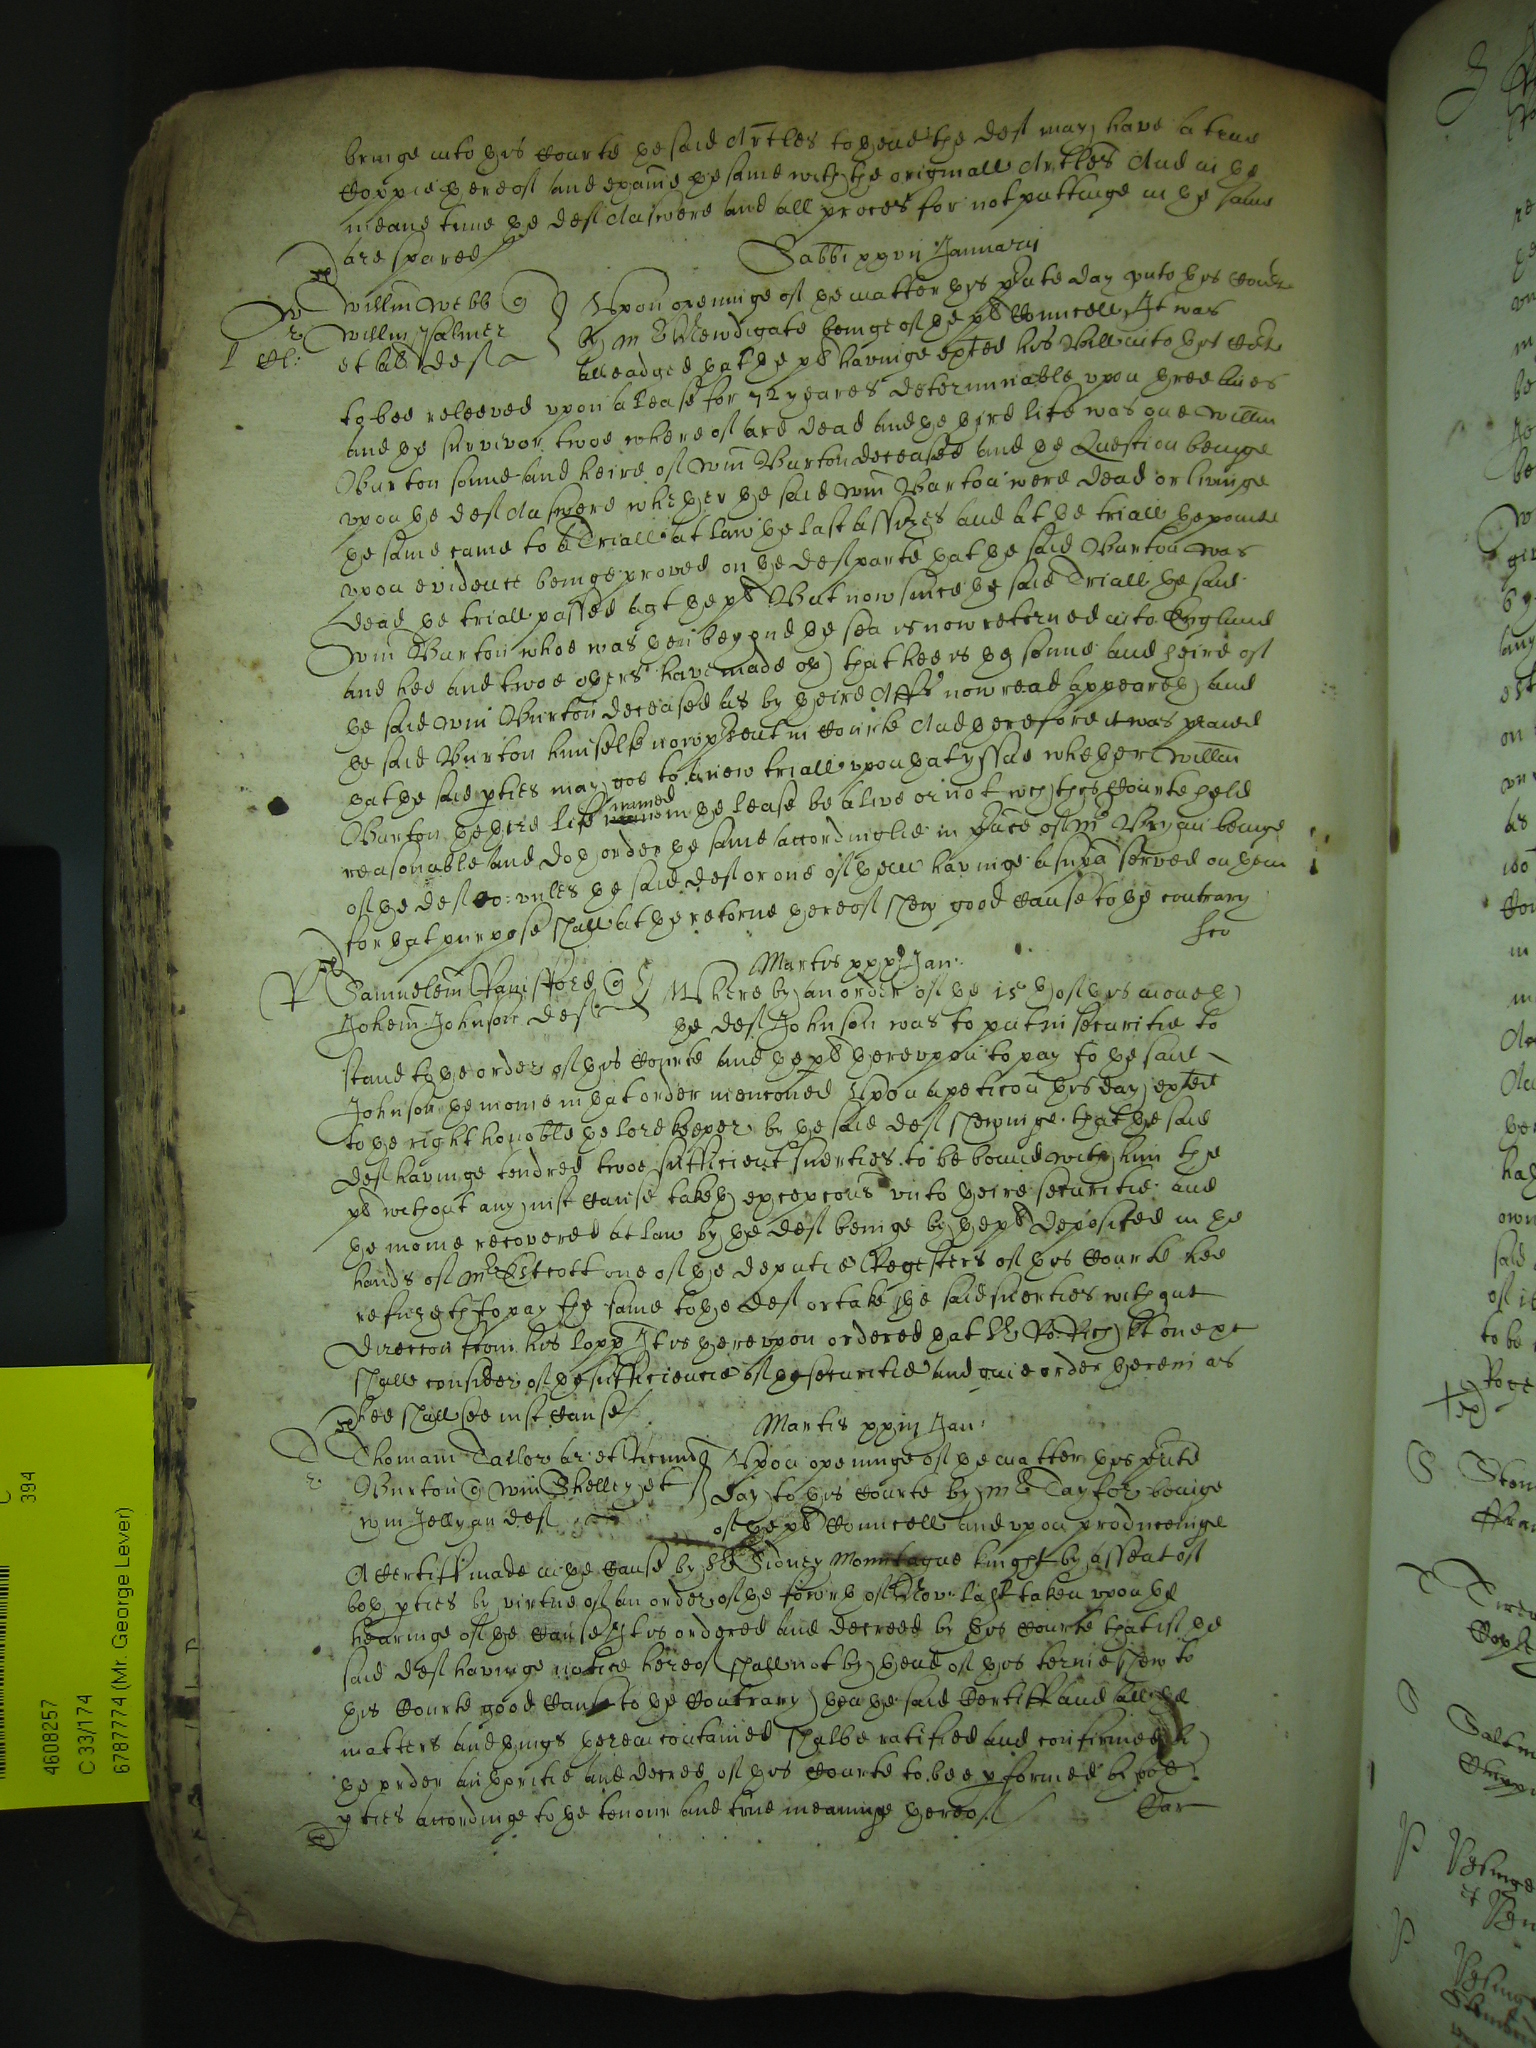 bringe into this Courte the said Artles to thend the deft may have a true
Coppie thereof and exaīe the same with the originall Artles And in the
meane tyme the deft Answere and all proces for not puttinge in the same
are spared
Sabbi xxvii Januarii
Willm Webb q
Willm Palmer
et al deft
Upon openinge of the matter this pnte day unto this Courte
by mr Newdigate beinge of the pl Councell It was
alleadged that the pl havinge exhted his Bill into this Corte
to bee releeved upon a lease for 72 yeares determinable upon three lives
and the survivor twoe whereof are dead and the third life was one Willm
Burton sonne and heire of Wm Burton deceased and the Question beinge
upon the deft Answere whether the said Wm Burton were dead or livinge
the same came to a Triall at law the last assizes and at the triall thereof
upon evidence beinge proved on the deft parte that the said Burton was
dead the triall passed agt the pl But now since the said Triall the said
Wm Burton whoe was then beyond the sea is now retorned into England
and hee and twoe others have made oth that hee is the sonne and heire of
the said Wm Burton deceased as by theire Affts now read appeareth and
the said Burton himselfe now psent in Courte And therefore it was praied
that the said pties may goe to a new triall upon that yssue whether Willm
Burton the third life named in the lease be alive or not wch this Courte held
reasonable and doth order the same accordinglie in psnce of mr Bryan beinge
of the deft Co: unles the said deft or one of them havinge a supa served on them
for that purpose shall at the retorne thereof shew good cause to the contrary
Martis xxx Jan:
Samuelem q
Johem Johnson deft
Where by an order of the 15th of this moneth
the deft Johnson was to put in securitie to
stand to the order of this Courte and the pl thereupon to pay to the said
Johnson the monie in that order menconed Upon a peticon this day exhted
to the right honoble the lord keeper by the said deft shewinge that the said
deft havinge tendred twoe sufficient suerties to be bound with him the
pl without any just cause taketh excepcons unto theire securitie and
the monie recovered at law by the deft beinge by the pl deposited in the
hands of mr Estcott one of the deputie Registers of this Courte hee
refuzeth to pay the same to the deft or take the said suerties without
direccon from his lopp It is thereupon ordered that Sr Ro: Rich kt one &c
shall consider of the sufficiencie of the securitie and give order therein as
hee shall see just cause
Martis xxiii Jan:
Thomam Tailor ar et
Burton q Wm Shelley et
Wm deft
Upon openinge of the matter this pnte
day to this Courte by mr Taylor beinge
of the pl Councell and upon produceinge
A Certifft made in the cause by Sr Sidney Mountague knight by assent of
both pties by virtue of an order of the fowrth of Nov: last taken upon the
hearinge of the cause It is ordered and decreed by this Courte that if the
said deft havinge notice hereof shall not by thend of this terme shew to
this Courte good cause to the contrary then the said Certifft and all the
matters and things therein contained shalbe ratified and confirmed by
the order authoritie and decree of this Courte to bee pformed by both
pties accordinge to the tenour and true meaninge thereof
Car
4608257
C 33/174
6787774 (Mr. George Lever)
394